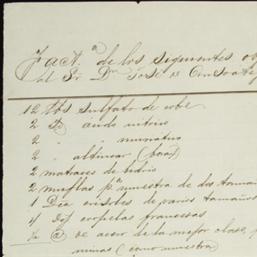 Factª de los siguientes ob
al Sr Dn José
12 lbs sulfato de cobre
2 ácido nítrico
2 " " muriatico
2 " altincar (borax)
2 matraces de vidrio
2 muflas pª muestra de dos tamañ
1 Dia crisoles de varios tamaños
4 copelas francesas
de acero de la mejor clase, p
minas (como muestra)